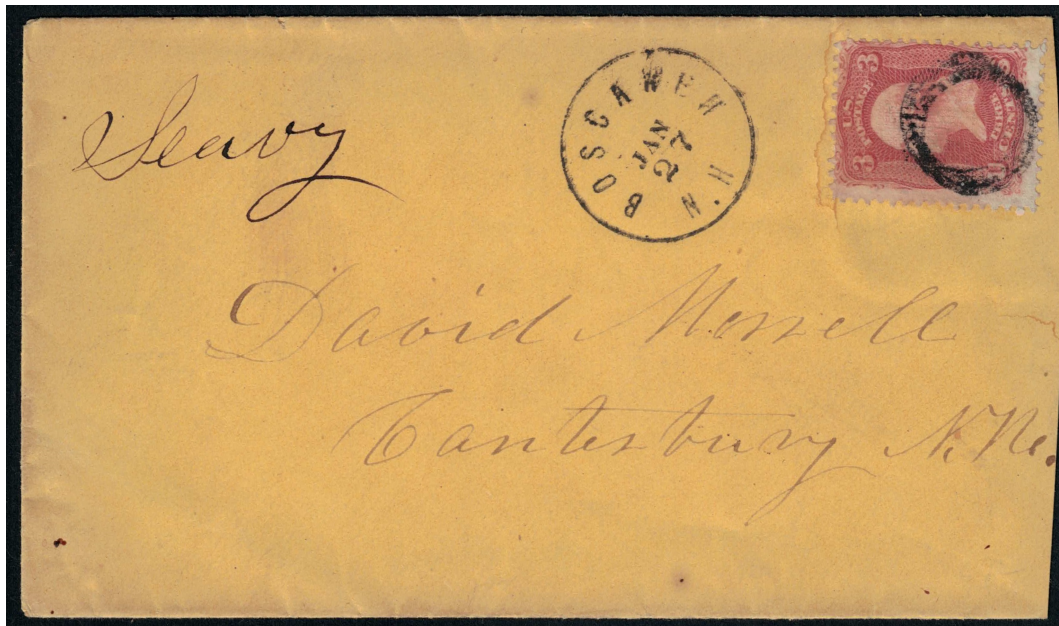 Seavy
BOSCAWEN N.H.
JAN
27
3 3
U.S.
POSTAGE
David Morrell
Canterbury N.H.